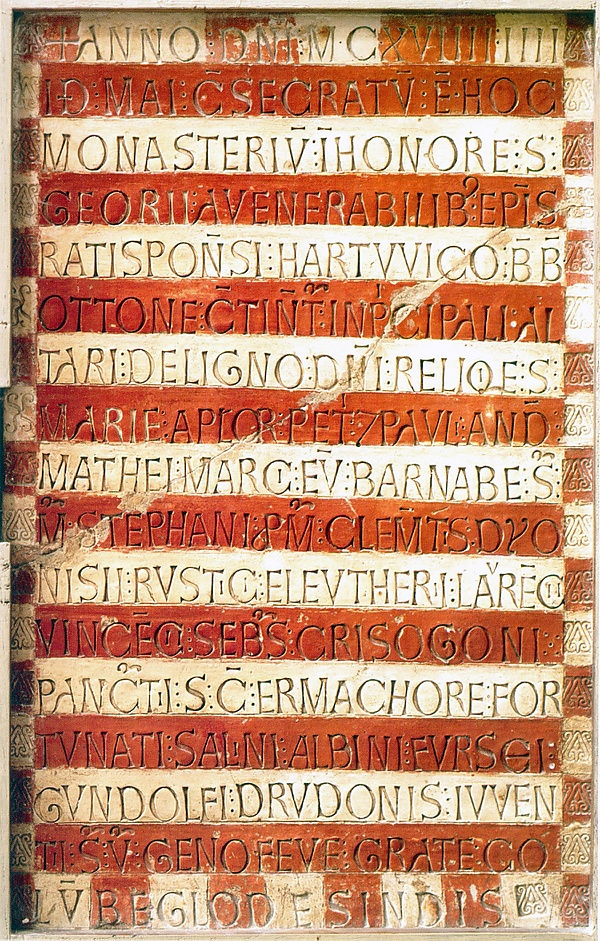 +ANNO·DN̄I·M·CXVIIII·IIII
IĐ·MAI:C̄SECRATV̄·Ē·HOC
MONASTERIV̄:ĪHONORE:S:
GEORII:AVENERABILIBꝰ:EPĪS
RATISPOÑSI:HARTVVICO:B̄B̄
OTTONE:C̄TIN̄T:INPͥCIPALI:AL
TARI:DELIGNO:DN̄I:RELIQ̇E:S:
MARIE:APLOR:PET:⁊PAVL:AND̄:
MATHEI:MARCI:EV̄:BARNABE:S̄:
M̄:STEPHANI:P̄M̄:CLEM̄TIS:DYO
NISII:RVSTICI:ELEVTHERII:LAV̆RĒCII
VINCĒCII:SEB̄S:CRISOGONI:
PANC̄TII:S:C̄:ERMACHORE:FOR
TVNATI:SALINI:ALBINI:FVRSEI:
GVNDOLFI:DRVDONIS:IVVEN
TII:S̄:V̄:GENOFEVE:GRATE:CO
LV̄BE GLODESINDIS